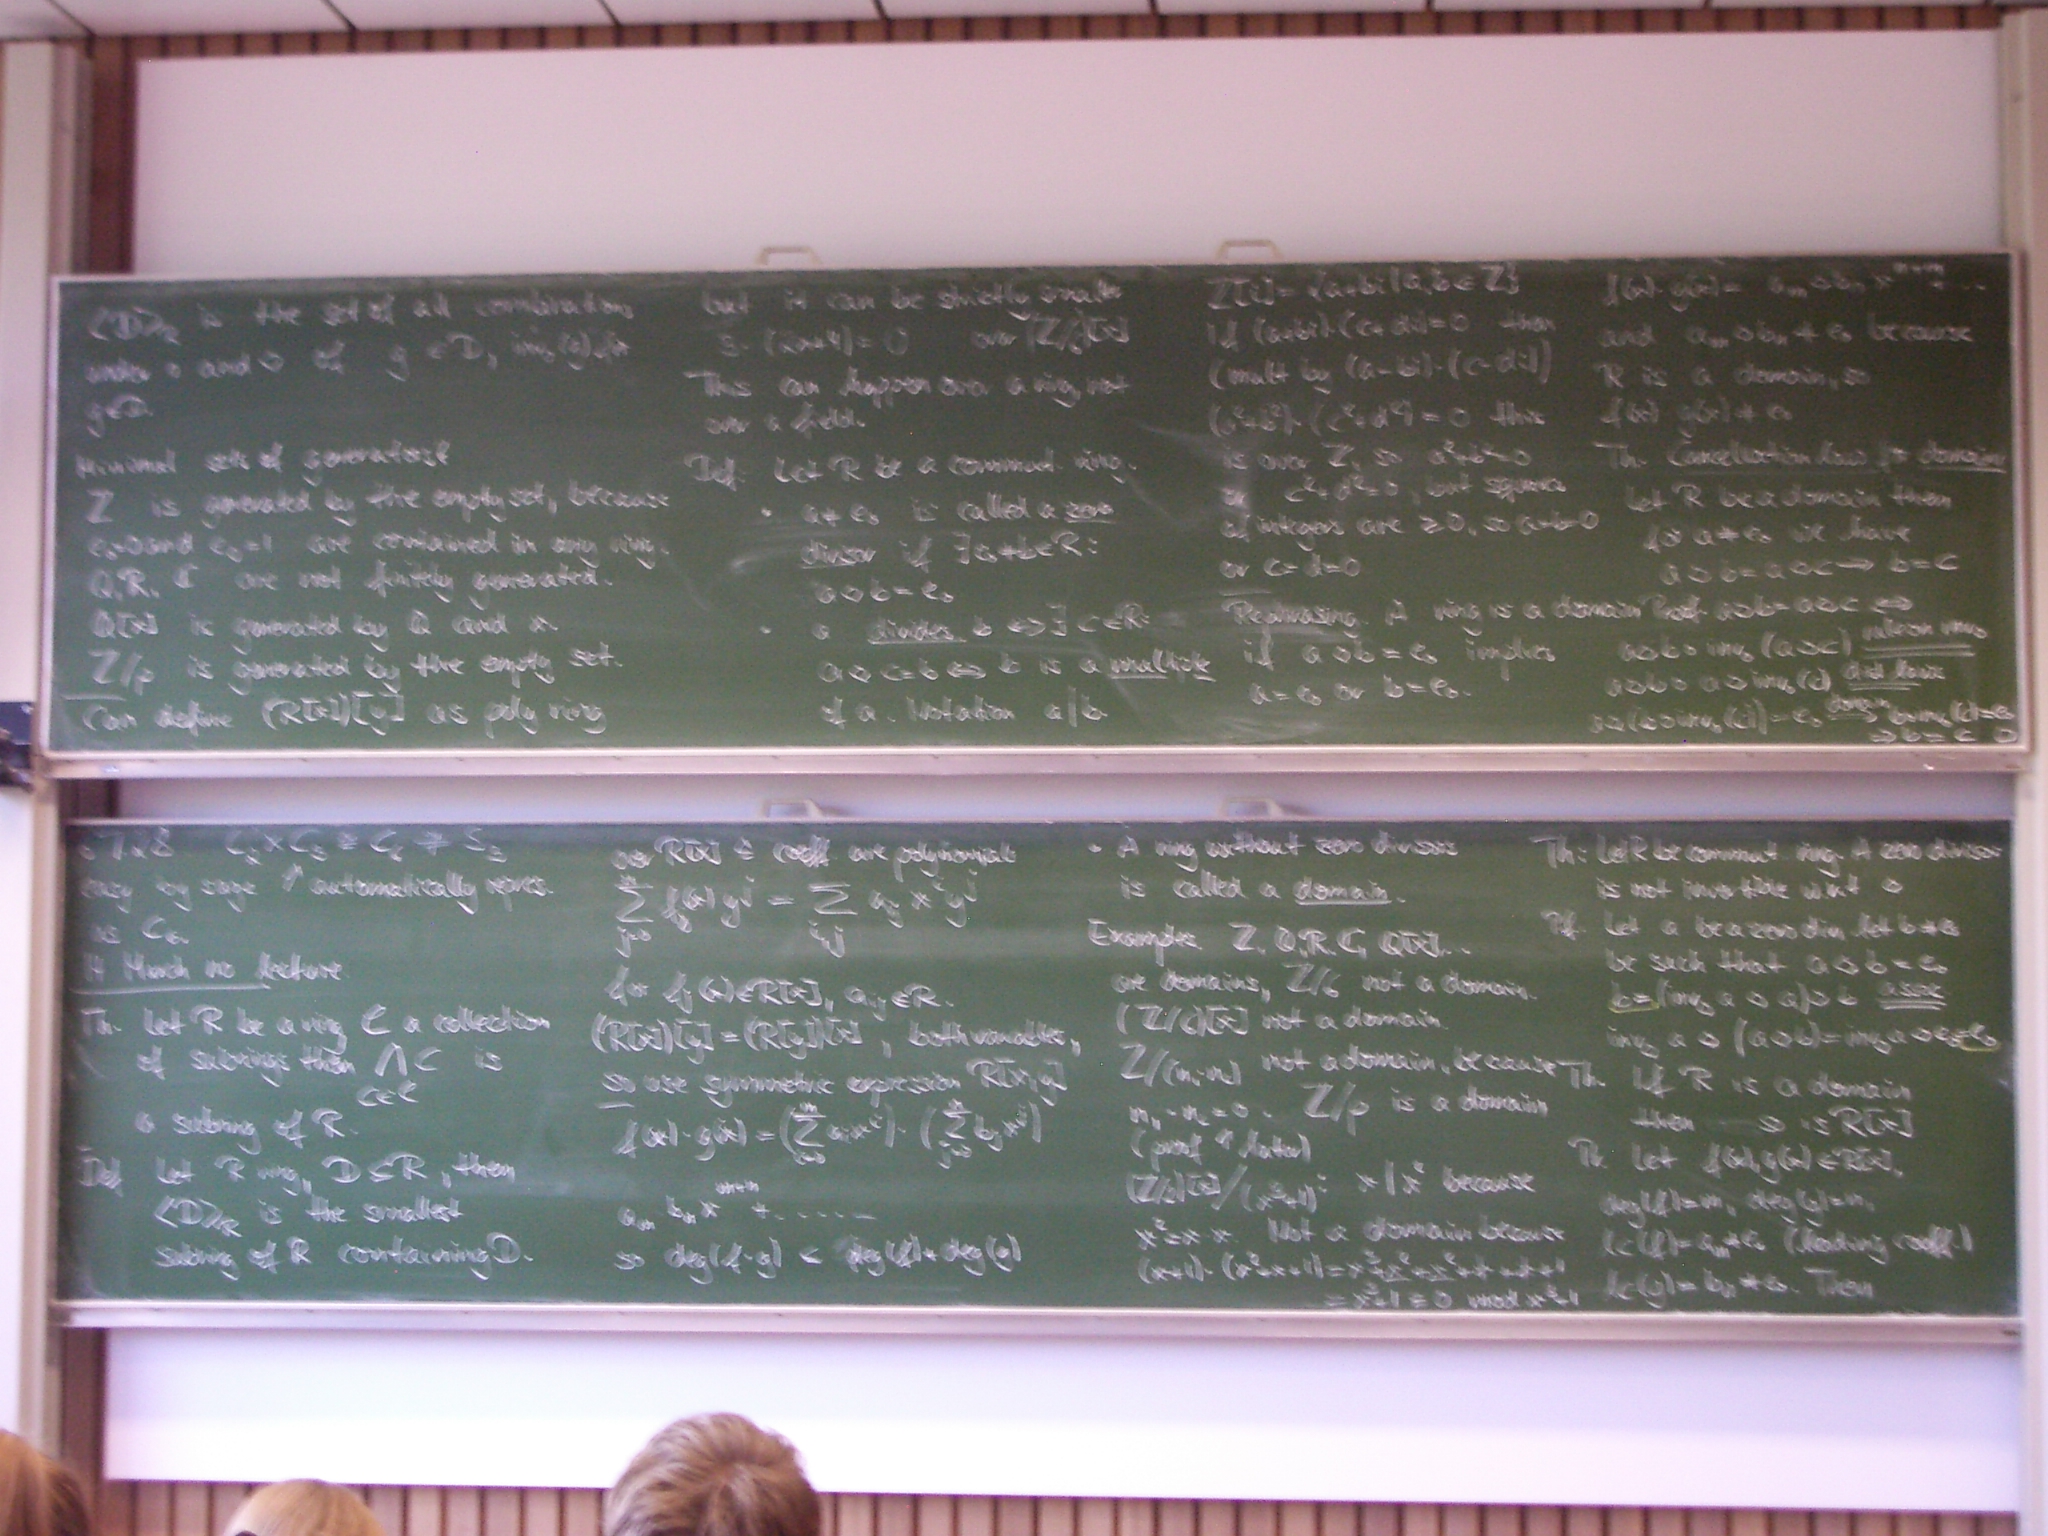 ⟨D⟩_R is the set of all combinations
under ∘ and ◇ of g ∈ D, inv_∘(g) for
g ∈ D.
Minimal sets of generators:
Z is generated by the empty set, because
e_∘=0 and e_◇=1 are contained in any ring.
Q, R, C are not finitely generated.
Q[x] is generated by Q and x.
Z/p is generated by the empty set.
Can define (R[x])[y] as poly ring
but it can be strictly smaller
3·(2x+4)=0 over (Z/6)[x]
This can happen over a ring, not
over a field.
Def: Let R be a commut. ring.
• a≠e_∘ is called a zero
divisor if ∃ e_∘≠b∈R:
a◇b=e_∘
• a divides b ⇔ ∃ c∈R:
a◇c=b ⇔ b is a multiple
of a. Notation a|b.
Z[i]={a+bi | a,b∈Z}
If (a+bi)·(c+di)=0 then
(mult by (a-bi)·(c-di))
(a²+b²)·(c²+d²)=0 this
is over Z, so a²+b²=0
or c²+d²=0, but squares
of integers are ≥0, so a=b=0
or c=d=0
Rephrasing: A ring is a domain
if a◇b=e_∘ implies
a=e_∘ or b=e_∘.
f(x)·g(x)= a_m◇b_n x^{n+m}+...
and a_m◇b_n≠e_∘ because
R is a domain, so
f(x)·g(x)≠e_∘
Th. Cancellation law for domains
Let R be a domain then
for a≠e_∘ we have
a◇b=a◇c ⇒ b=c
Proof. a◇b=a◇c ⇔
a◇b∘inv_∘(a◇c)
a◇b∘a◇inv_∘(c) dist. laws
a◇(b∘inv_∘(c))=e_∘ domain ⇒ b∘inv_∘(c)=e_∘
⇒ b=c □
C_2×C_3≅C_6≇S_3
easy by sage ↑ automatically repres.
is C_6.
March no lecture
Th. Let R be a ring, C a collection
of subrings then ⋂ C is
C∈C
a subring of R.
Def Let R ring, D⊆R, then
⟨D⟩_R is the smallest
subring of R containing D.
over R[x] ≙ coeff. are polynomials
Σ_{j=0}^n f_j(x) y^j = Σ_{i,j} a_{ij} x^i y^j
for f_j(x)∈R[x], a_{ij}∈R.
(R[x])[y]=(R[y])[x], both variables,
so use symmetric expression R[x,y]
f(x)·g(x)=(Σ_{i=0}^m a_i x^i)·(Σ_{j=0}^n b_j x^j)
a_m b_n x^{m+n}+.....
so deg(f·g) ≤ deg(f)+deg(g)
• A ring without zero divisors
is called a domain.
Examples Z, Q, R, C, Q[x]...
are domains, Z/6 not a domain.
(Z/6)[x] not a domain.
Z/(n_1·n_2) not a domain, because
n_1·n_2=0. Z/p is a domain
(proof later)
(Z/2)[x]/(x³+1): x|x² because
x²=x·x. Not a domain because
(x+1)·(x²+x+1)=x³+x²+x²+x+x+1
=x³+1≡0 mod x³+1
Th: Let R be commut. ring. A zero divisor
is not invertible w.r.t ◇
Pf. Let a be a zero div. let b≠e_∘
be such that a◇b=e_∘
b=(inv_◇ a◇a)◇b assoc
inv_◇ a◇(a◇b)=inv_◇ a◇e_∘=e_∘
Th. If R is a domain
then so is R[x]
Pf. Let f(x), g(x)∈R[x],
deg(f)=m, deg(g)=n,
lc(f)=a_m≠e_∘ (leading coeff.)
lc(g)=b_n≠e_∘. Then